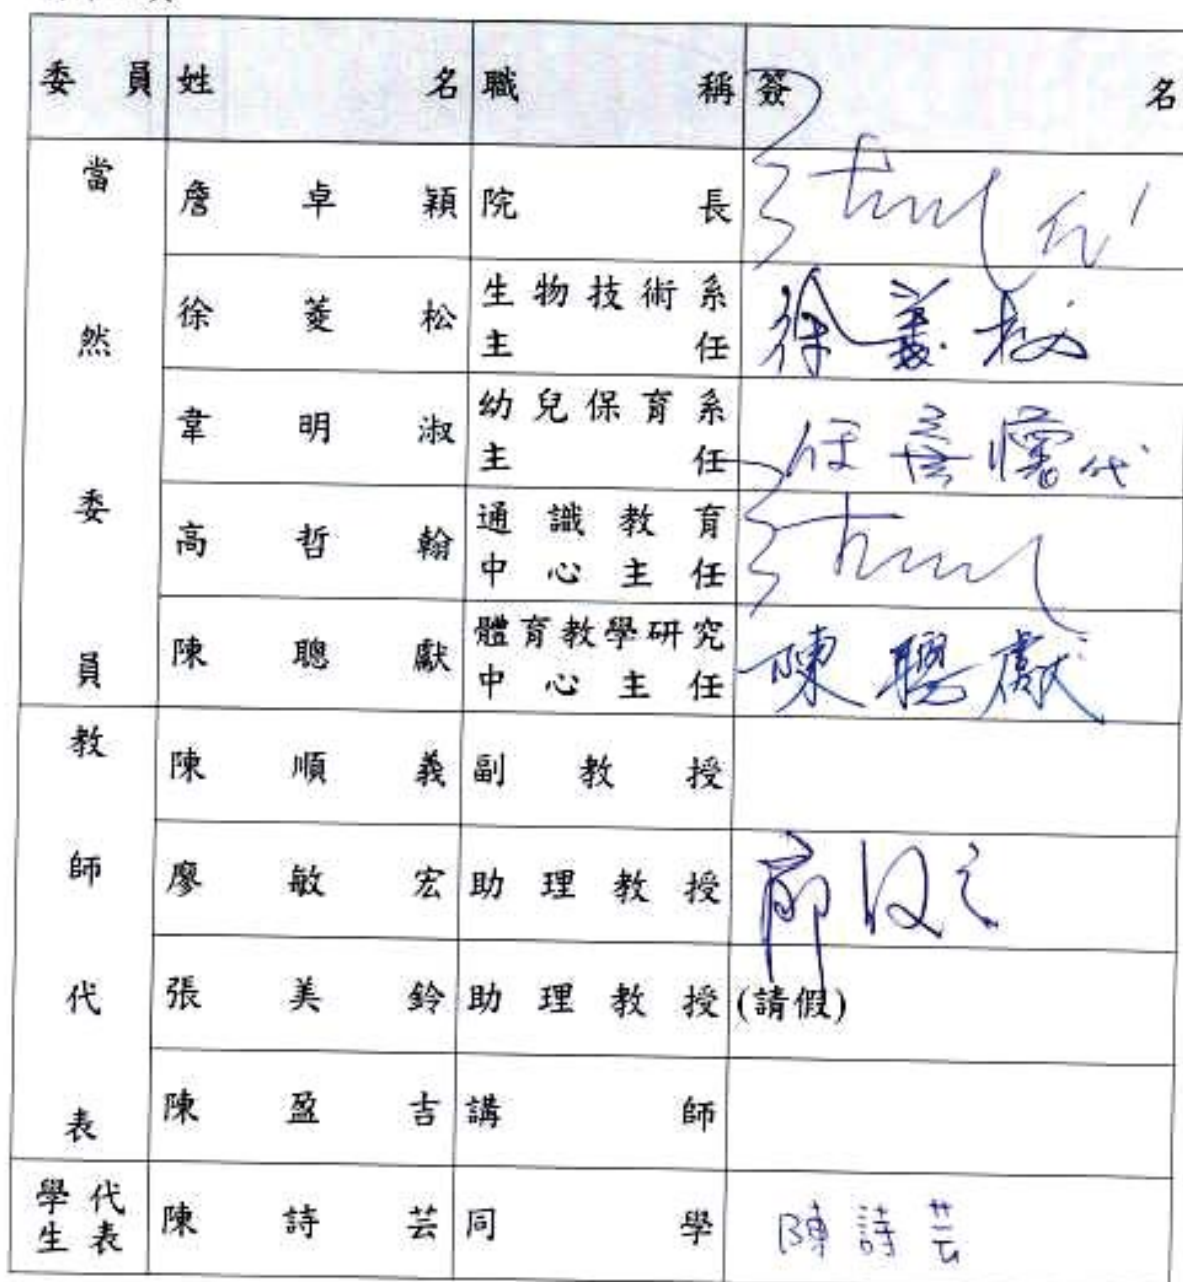 委員 姓名 職稱 簽名
當然委員
詹卓穎 院長 代
徐菱松 生物技術系
主任 徐菱松
韋明淑 幼兒保育系
主任 代
高哲翰 通識教育
中心主任
陳聰獻 體育教學研究
中心主任 陳聰獻
教師代表
陳順義 副教授
廖敏宏 助理教授
張美鈴 助理教授 (請假)
陳盈吉 講師
學生代表 陳詩芸 同學 陳詩芸